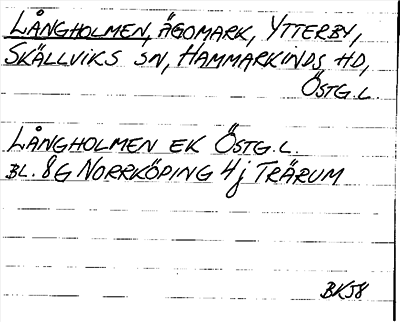 LÅNGHOLMEN, ÄGOMARK, YTTERBY,
SKÄLLVIKS SN, HAMMARKINDS HD,
ÖSTG.L.
LÅNGHOLMEN EK ÖSTG.L.
BL. 8G NORRKÖPING 4j TRÄRUM
BK58